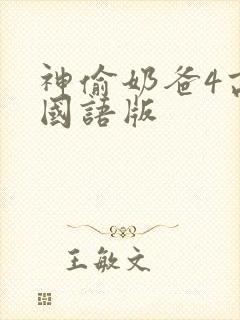 神偷奶爸4
國語版
王敏文